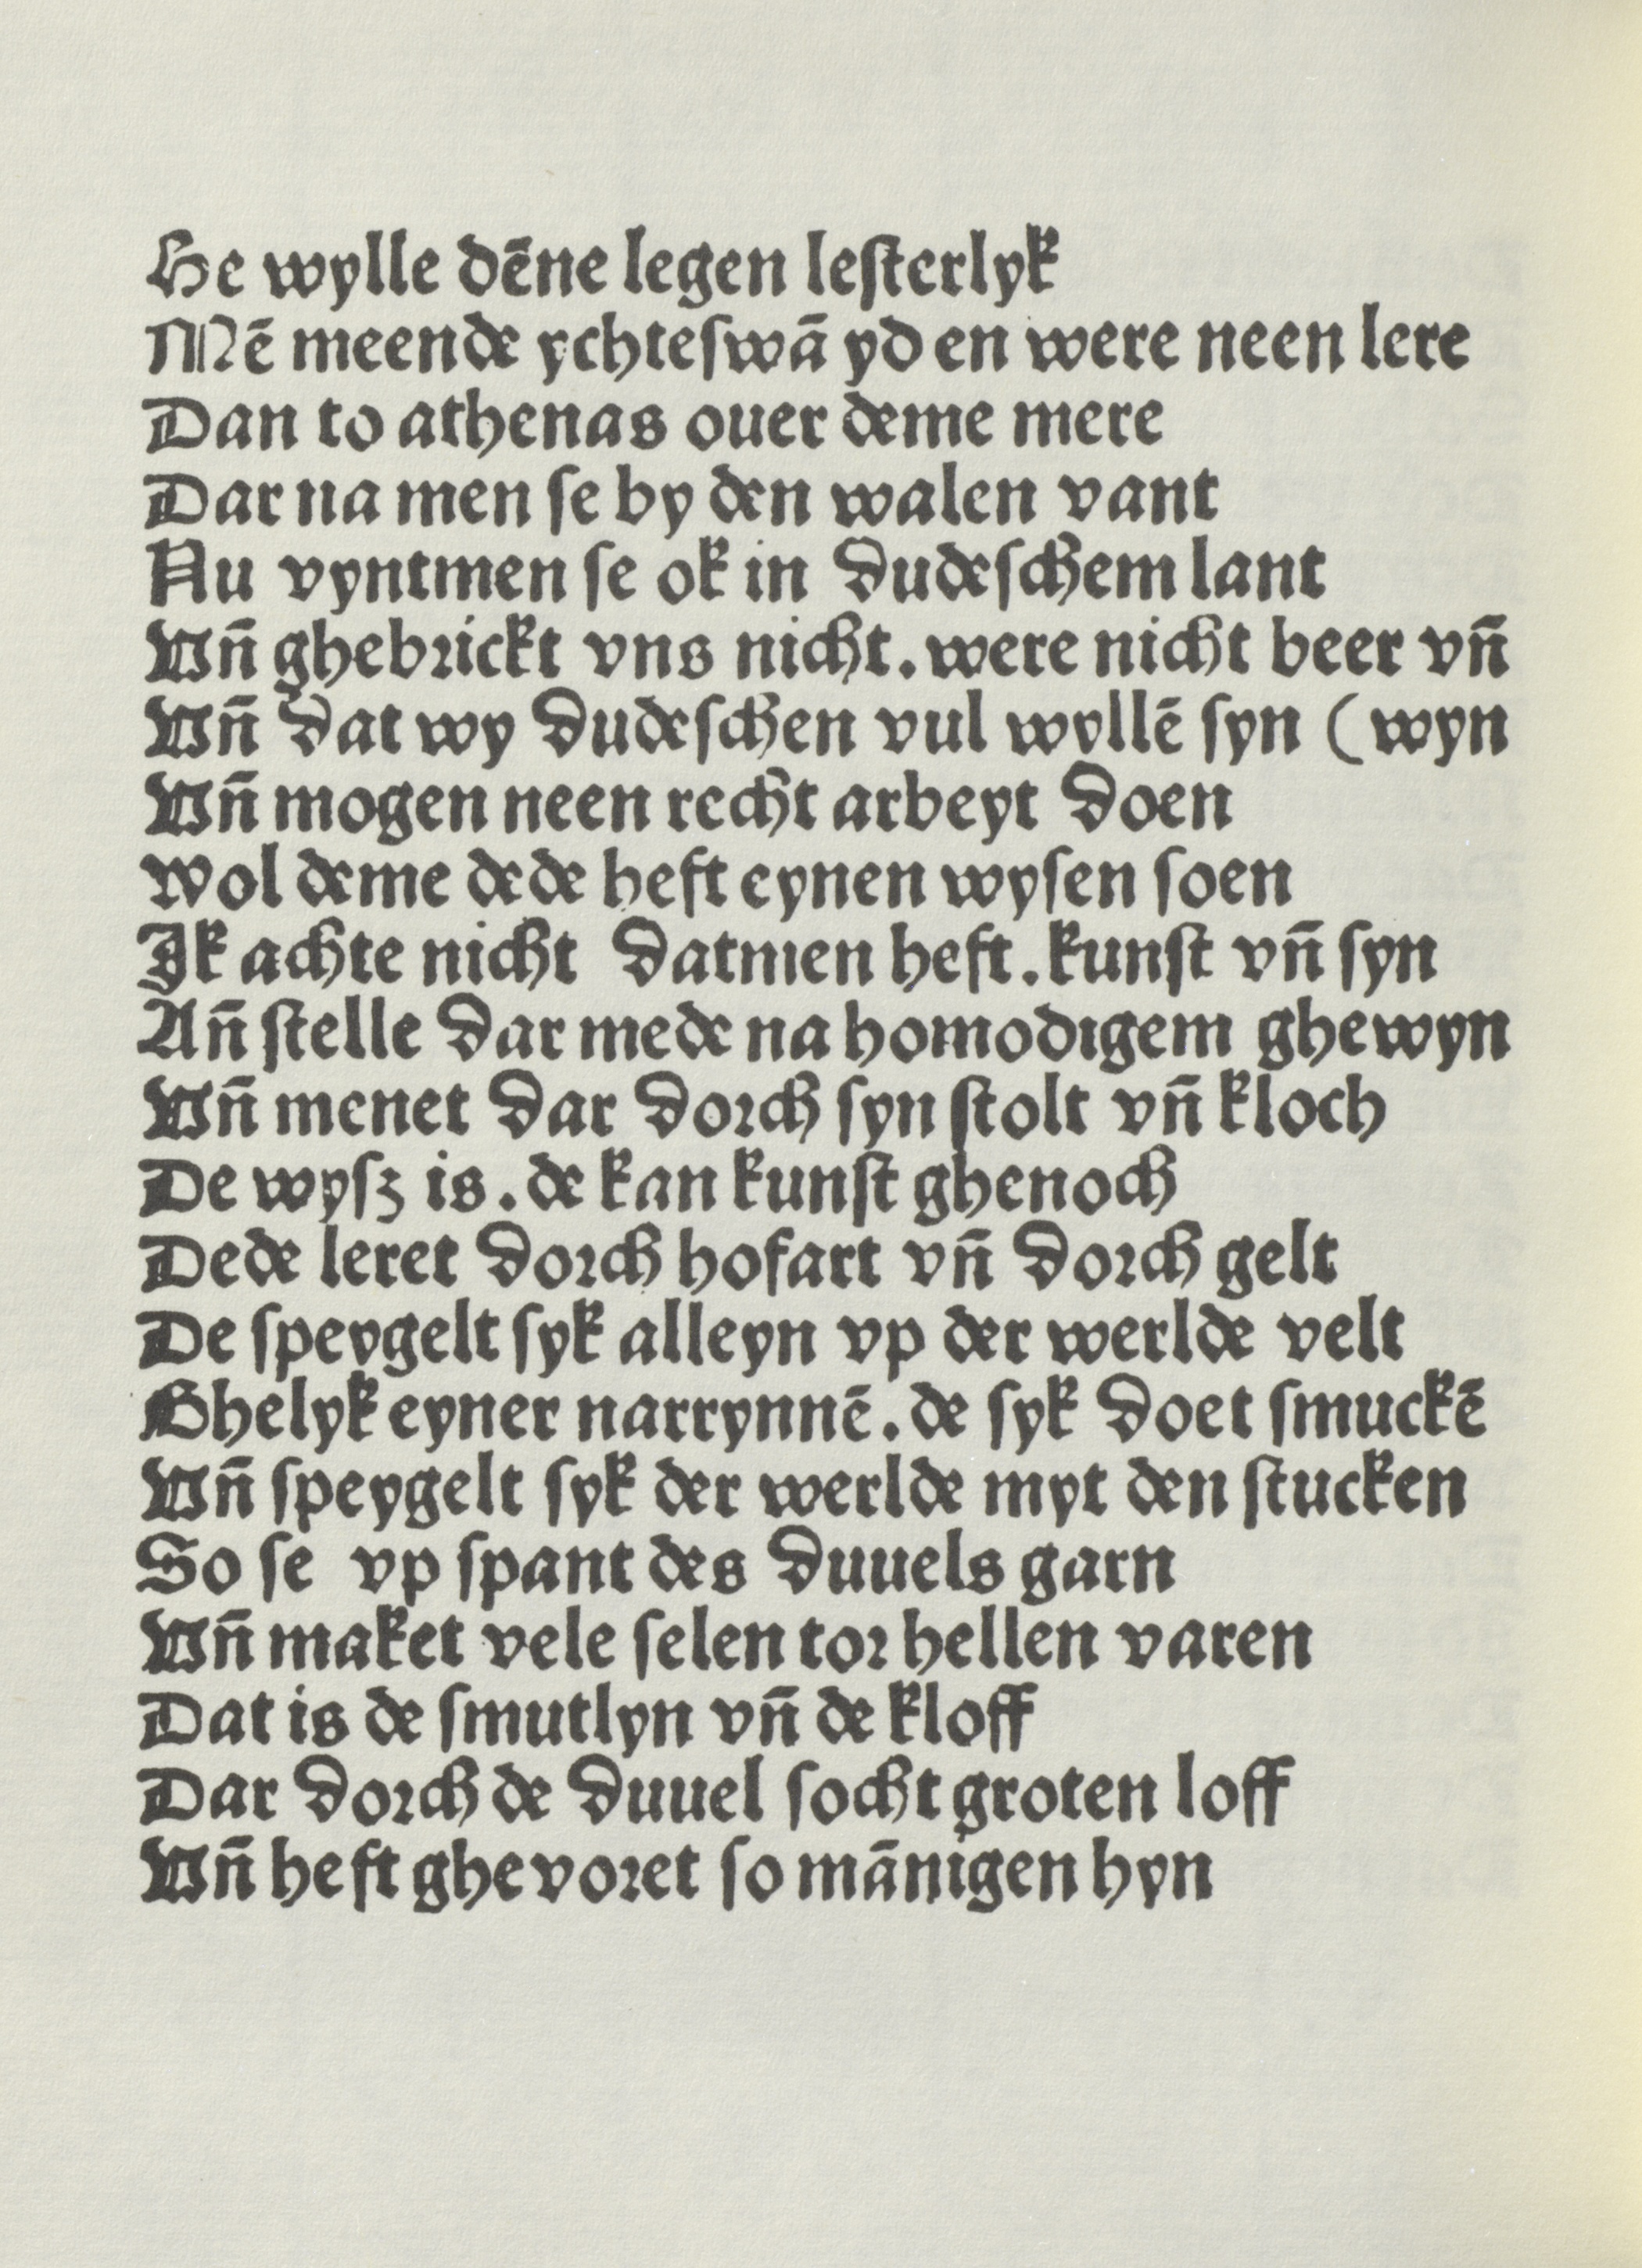 He wylle dēne legen leſterlyk
Mē meende ychteſwā yd en were neen lere
Dan to athenas ouer deme mere
Dar na men ſe by den walen vant
Nu vyntmen ſe ok in dudeſchem lant
Vn̄ ghebꝛickt vns nicht. were nicht beer vn̄
Vn̄ dat wy dudeſchen vul wyllē ſyn ( wyn
Vn̄ mogen neen recht arbeyt doen
Wol deme dede heft eynen wyſen ſoen
Ik achte nicht datmen heft. kunſt vn̄ ſyn
An̄ ſtelle dar mede na homodigem ghewyn
Vn̄ menet dar doꝛch ſyn ſtolt vn̄ kloch
De wyſz is. de kan kunſt ghenoch
Dede leret doꝛch hofart vn̄ doꝛch gelt
De ſpeygelt ſyk alleyn vp der werlde velt
Ghelyk eyner narrynnē. de ſyk doet ſmuckē
Vn̄ ſpeygelt ſyk der werlde myt den ſtucken
So ſe vp ſpant des duuels garn
Vn̄ maket vele ſelen toꝛ hellen varen
Dat is de ſmutlyn vn̄ de kloff
Dar doꝛch de duuel ſocht groten loff
Vn̄ heft ghevoꝛet ſo mānigen hyn